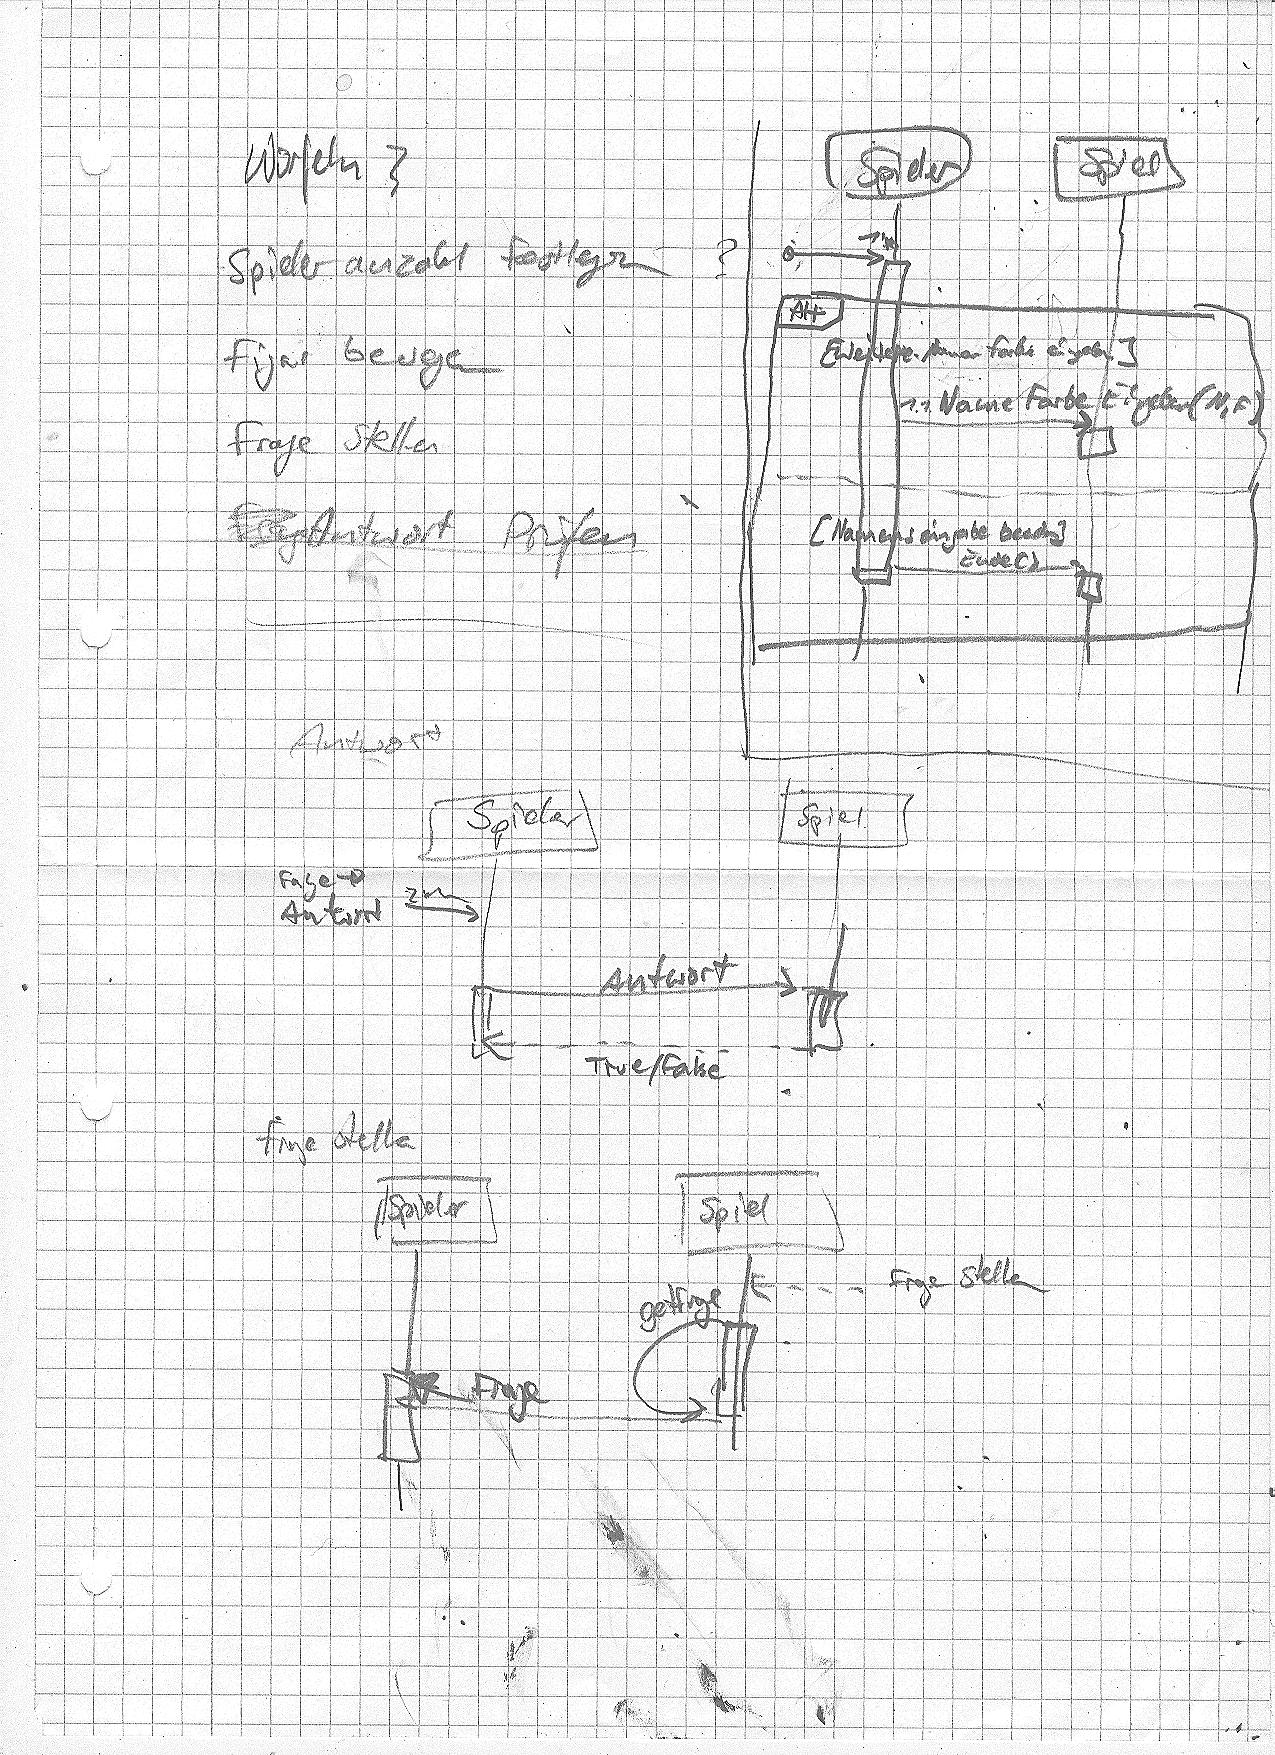 Würfeln ?
Spieler anzahl festlegen ?
Figur bewegen
Frage stellen
Antwort Prüfen
Spieler
Spiel
Alt
1.1 Name Farbe Eingeben(N,F)
[Namenseingabe beenden]
Ende()
Antwort
Spieler
Spiel
Frage
Antwort
Antwort
True/False
Frage stellen
Spieler
Spiel
Frage stellen
getFrage
Frage